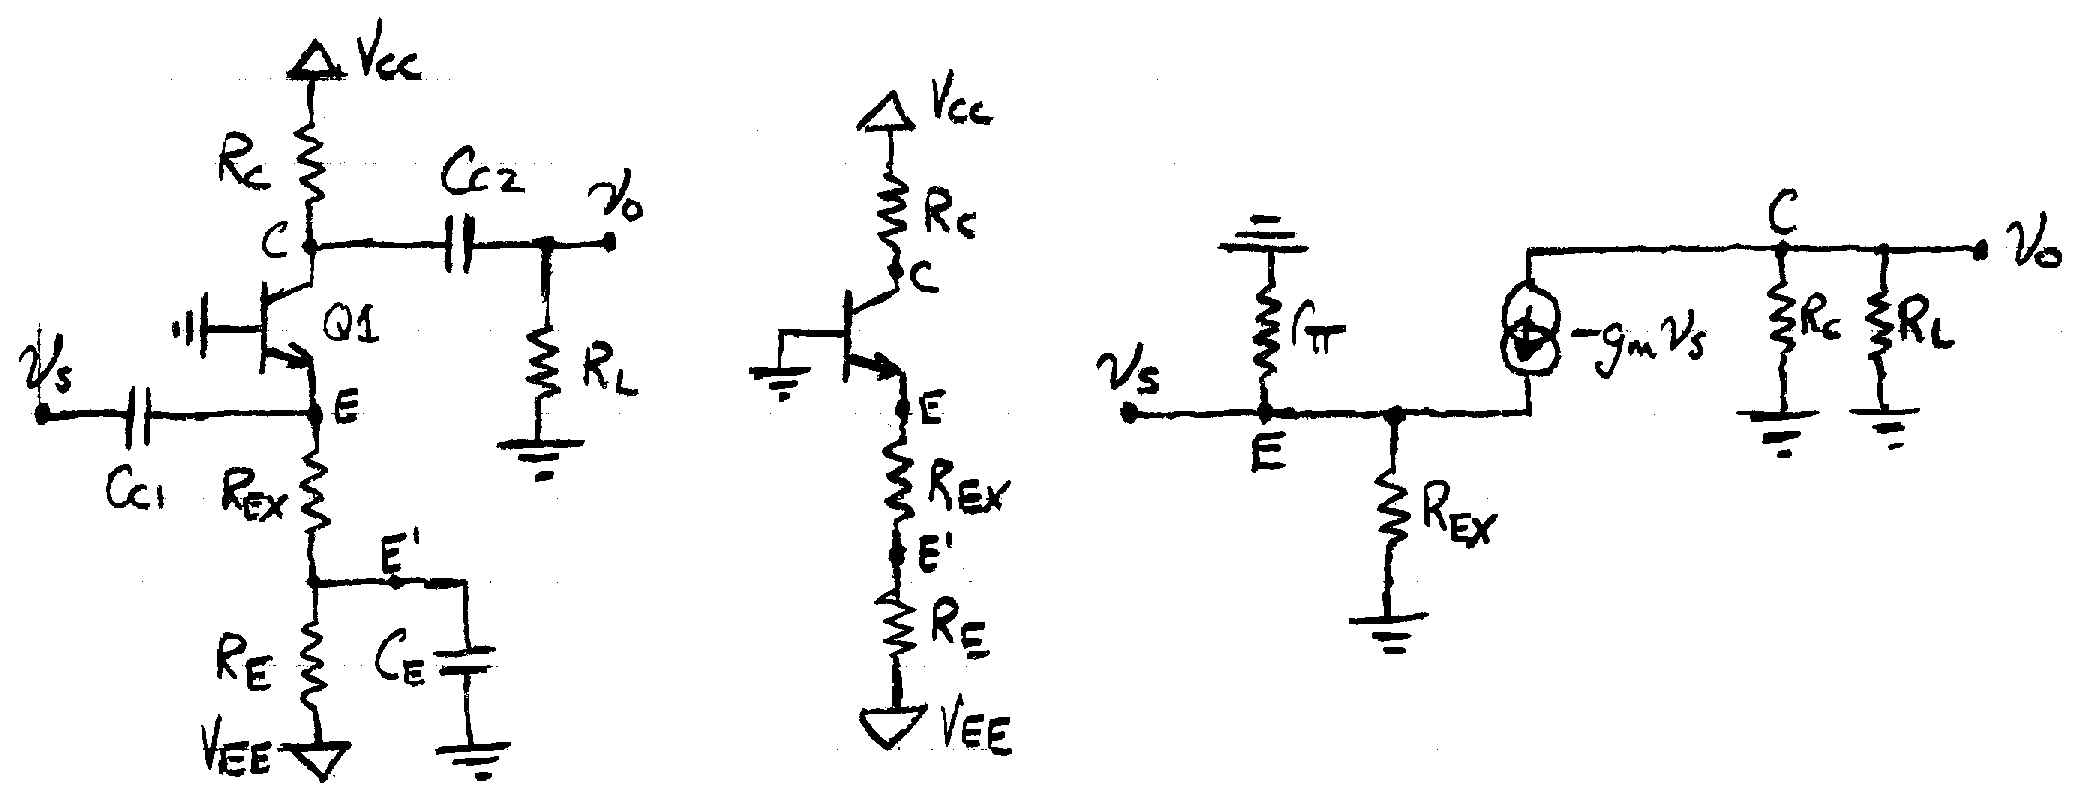 Vcc
Rc
Cc2
vo
C
Q1
RL
vs
E
Cc1
REX
E'
RE
CE
VEE
Vcc
Rc
C
E
REX
E'
RE
VEE
C
vo
rπ
-gmvs
Rc
RL
vs
E
REX